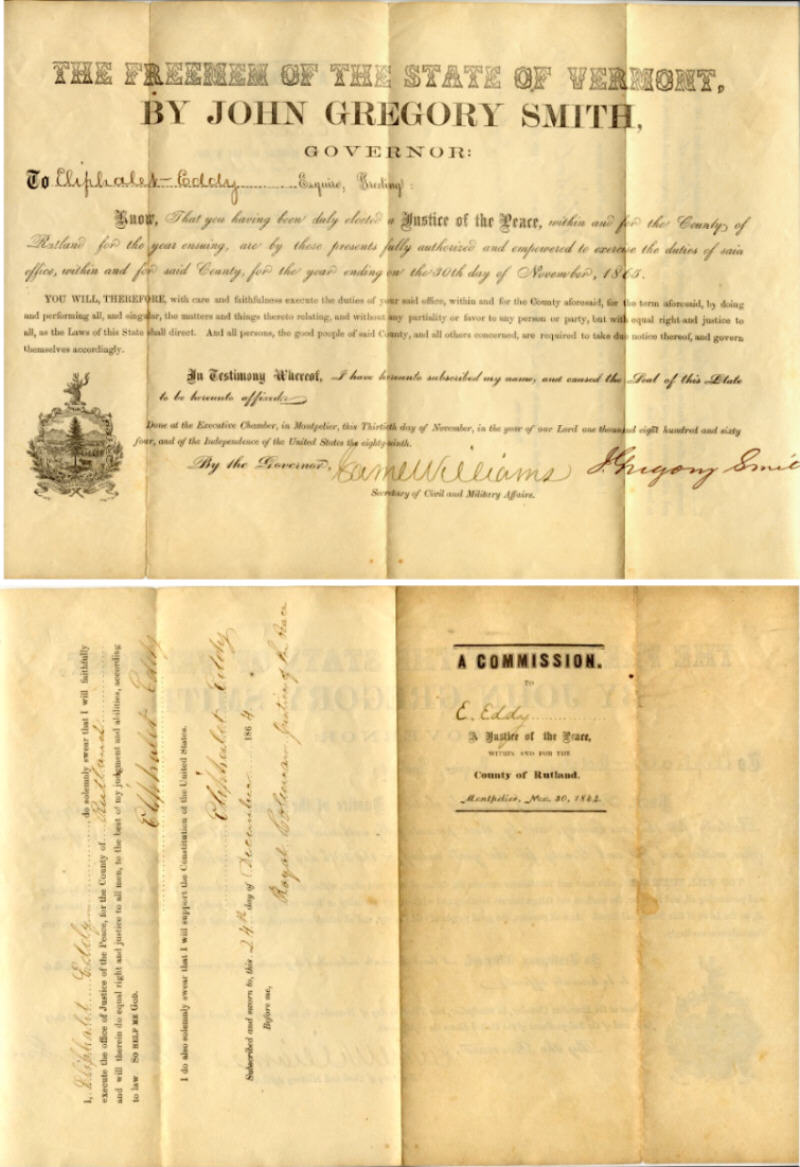 THE FREEMEN OF THE STATE OF VERMONT,
BY JOHN GREGORY SMITH,
GOVERNOR:
To Eliphalet Eddy Esquire, Greeting:
Know, That you having been duly elected a Justice of the Peace, within and for the County of
Rutland for the year ensuing, are by these presents fully authorized and empowered to exercise the duties of said
office, within and for said County, for the year ending on the 30th day of November, 1865.
YOU WILL, THEREFORE, with care and faithfulness execute the duties of your said office, within and for the County aforesaid, for the term aforesaid, by doing
and performing all, and singular, the matters and things thereto relating, and without any partiality or favor to any person or party, but with equal right and justice to
all, as the Laws of this State shall direct. And all persons, the good people of said County, and all others concerned, are required to take due notice thereof, and govern
themselves accordingly.
In Testimony Whereof, I have hereunto subscribed my name, and caused the Seal of this State
to be hereunto affixed.
Done at the Executive Chamber, in Montpelier, this Thirtieth day of November, in the year of our Lord one thousand eight hundred and sixty
four, and of the Independence of the United States the eighty-ninth.
By the Governor, Saml Williams J. Gregory Smit
Secretary of Civil and Military Affairs.
I, Eliphalet Eddy do solemnly swear that I will faithfully
execute the office of Justice of the Peace, for the County of Rutland
and will therein do equal right and justice to all men, to the best of my judgment and abilities, according
to law. SO HELP ME GOD.
Eliphalet Eddy
I do also solemnly swear that I will support the Constitution of the United States.
Eliphalet Eddy
Subscribed and sworn to, this 24th day of December 1864.
Before me,
Royal Coleman Justice of the Peace
A COMMISSION.
TO
E. Eddy
A Justice of the Peace,
WITHIN AND FOR THE
County of Rutland.
Montpelier, Nov. 30, 186